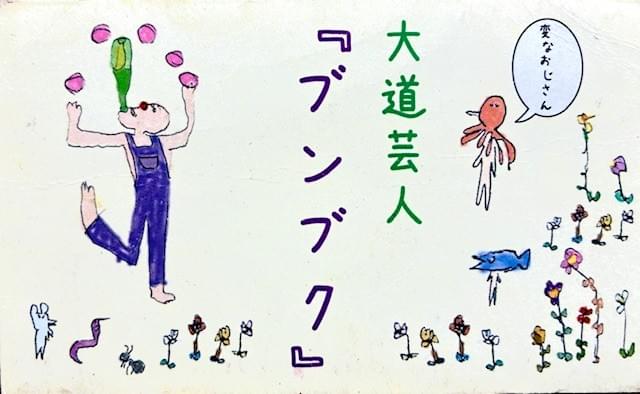 変なおじさん
大道芸人
『ブンブク』